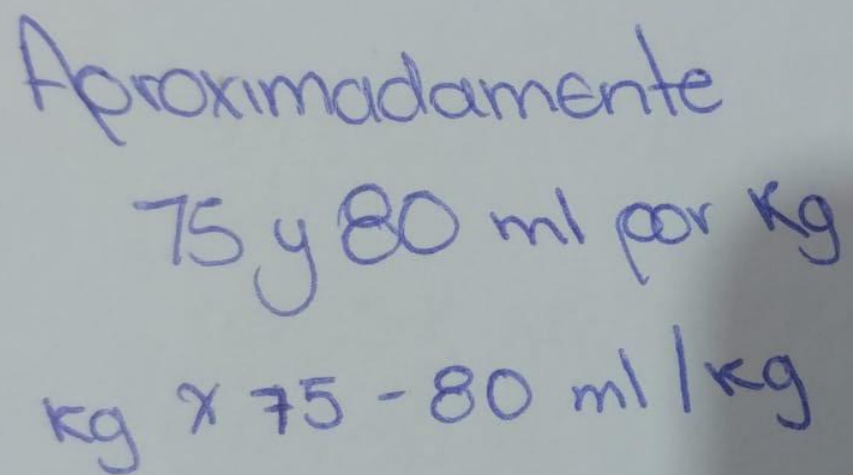 Aproximadamente
75 y 80 ml por Kg
kg x 75 - 80 ml / kg